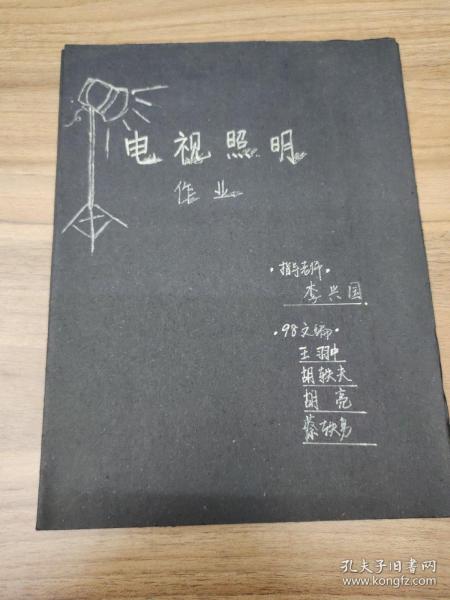 电视照明
作业
·指导老师·
李兴国
·98文编·
王翀
胡轶夫
胡亮
蔡轶勇
孔夫子旧书网
www.kongfz.com